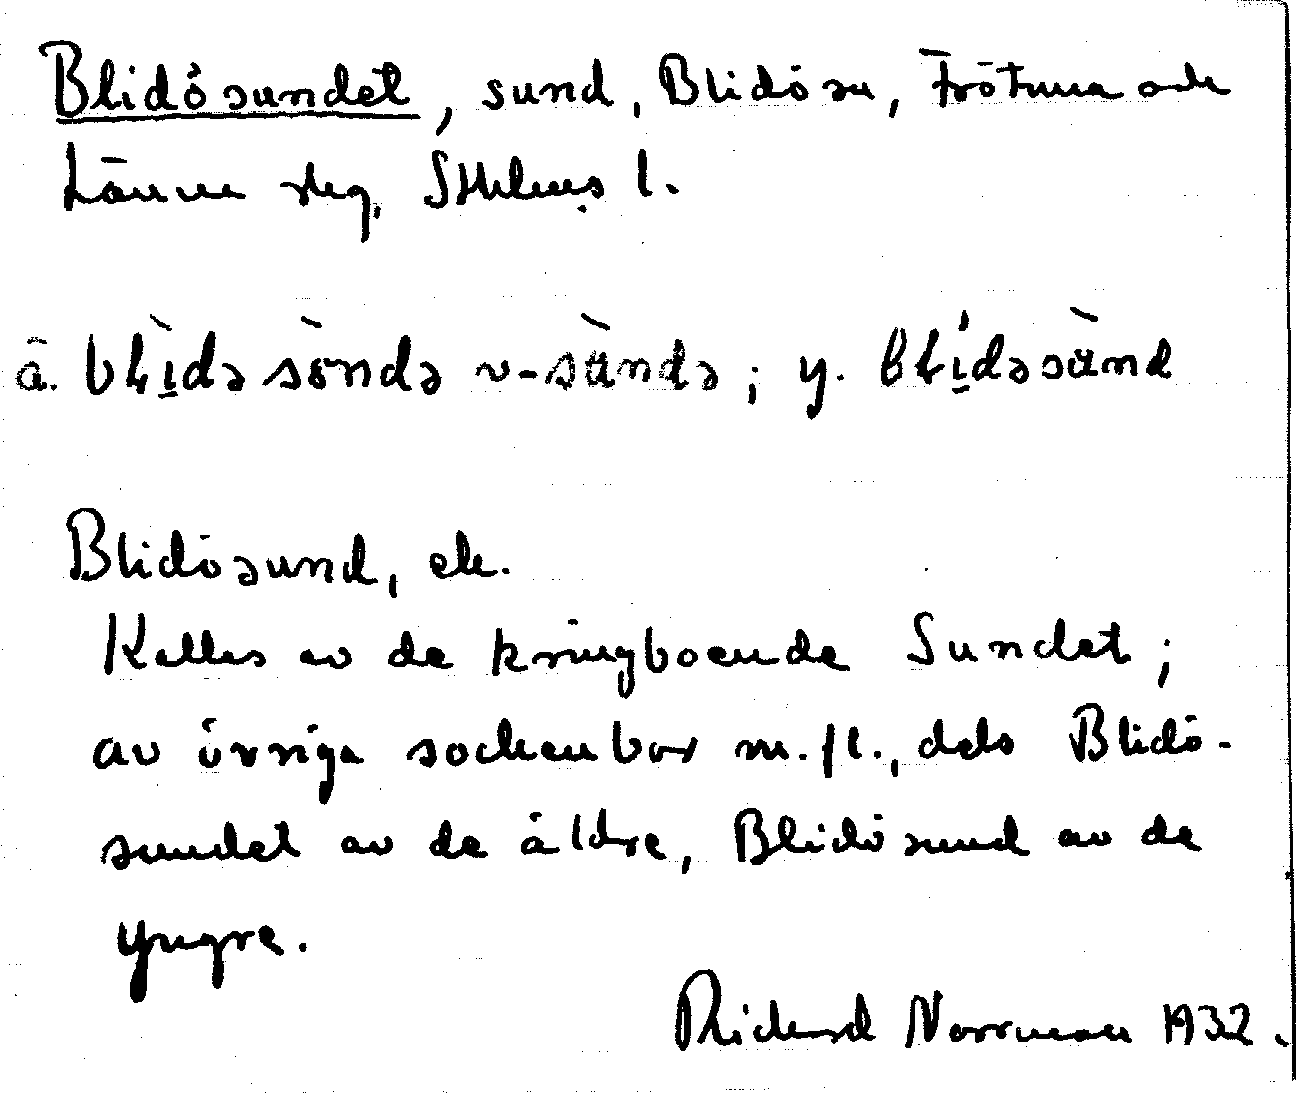 Blidösundet, sund, Blidö sn, Frötuna och
Länna skg, Sthlms l.
ä. blìdə söǹdə v-säǹdə; y. blídəsäǹd
Blidösund, ek.
Kallas av de kringboende Sundet;
av övriga sockenbor m.fl., dels Blidö-
sundet av de äldre, Blidösund av de
yngre.
Rickard Norrman 1932.